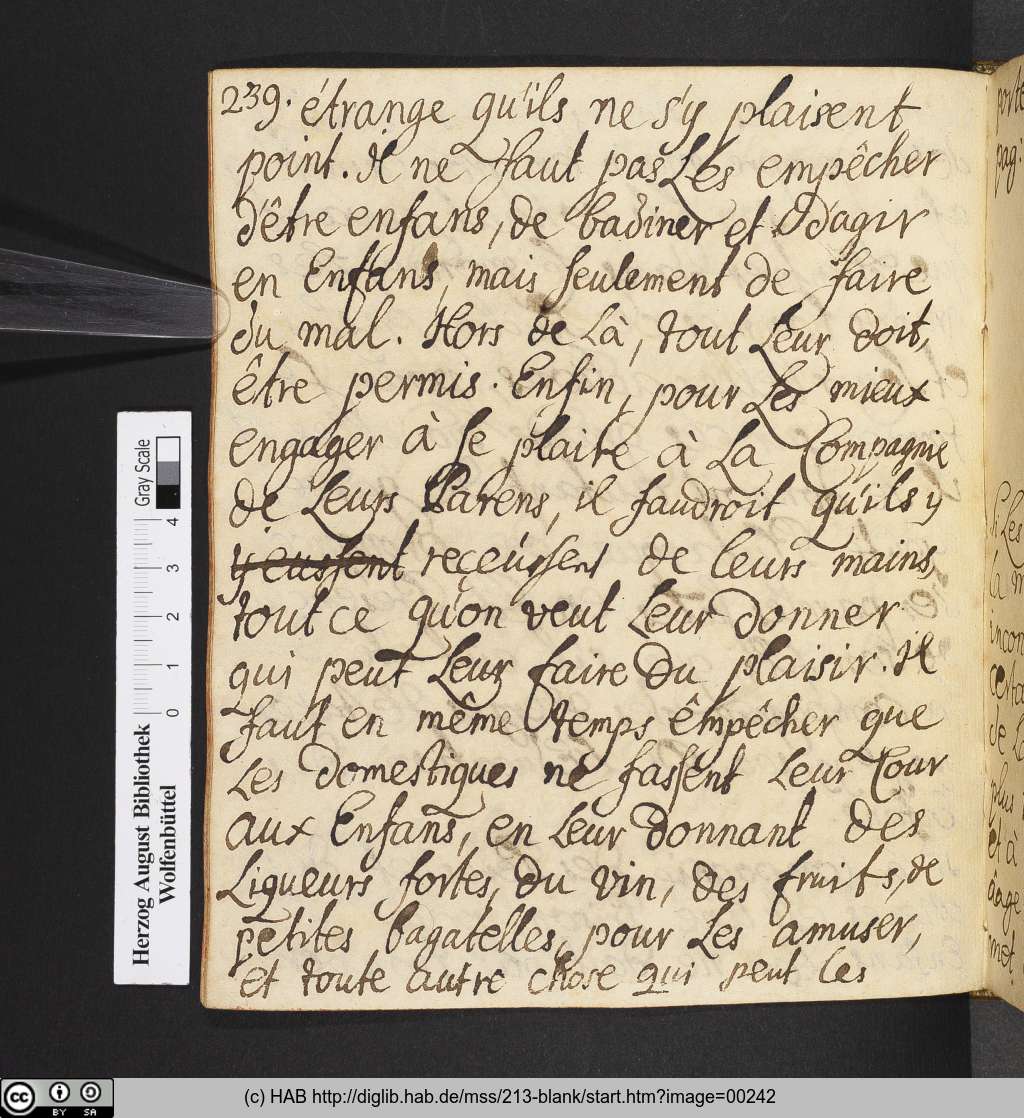 239. étrange qu'ils ne s'y plaisent
point. Il ne faut pas Les empêcher
d'être enfans, de badiner et d'agir
en Enfans, mais seulement de faire
du mal. Hors de Là, tout Leur doit,
être permis. Enfin, pour Les mieux
engager à se plaire à La Compagnie
de Leurs Parens, il faudroit qu'ils y
y eussent reçeussent de leurs mains,
tout ce qu'on veut Leur donner
qui peut Leur faire du plaisir. Il
faut en même temps êmpêcher que
Les domestiques ne fassent Leur Cour
aux Enfans, en Leur donnant des
Liqueurs fortes, du vin, des fruits, de
petites bagatelles, pour Les amuser,
et toute autre chose qui peut les
Herzog August Bibliothek
Wolfenbüttel
0 1 2 3 4
Gray Scale
cc BY SA
(c) HAB http://diglib.hab.de/mss/213-blank/start.htm?image=00242